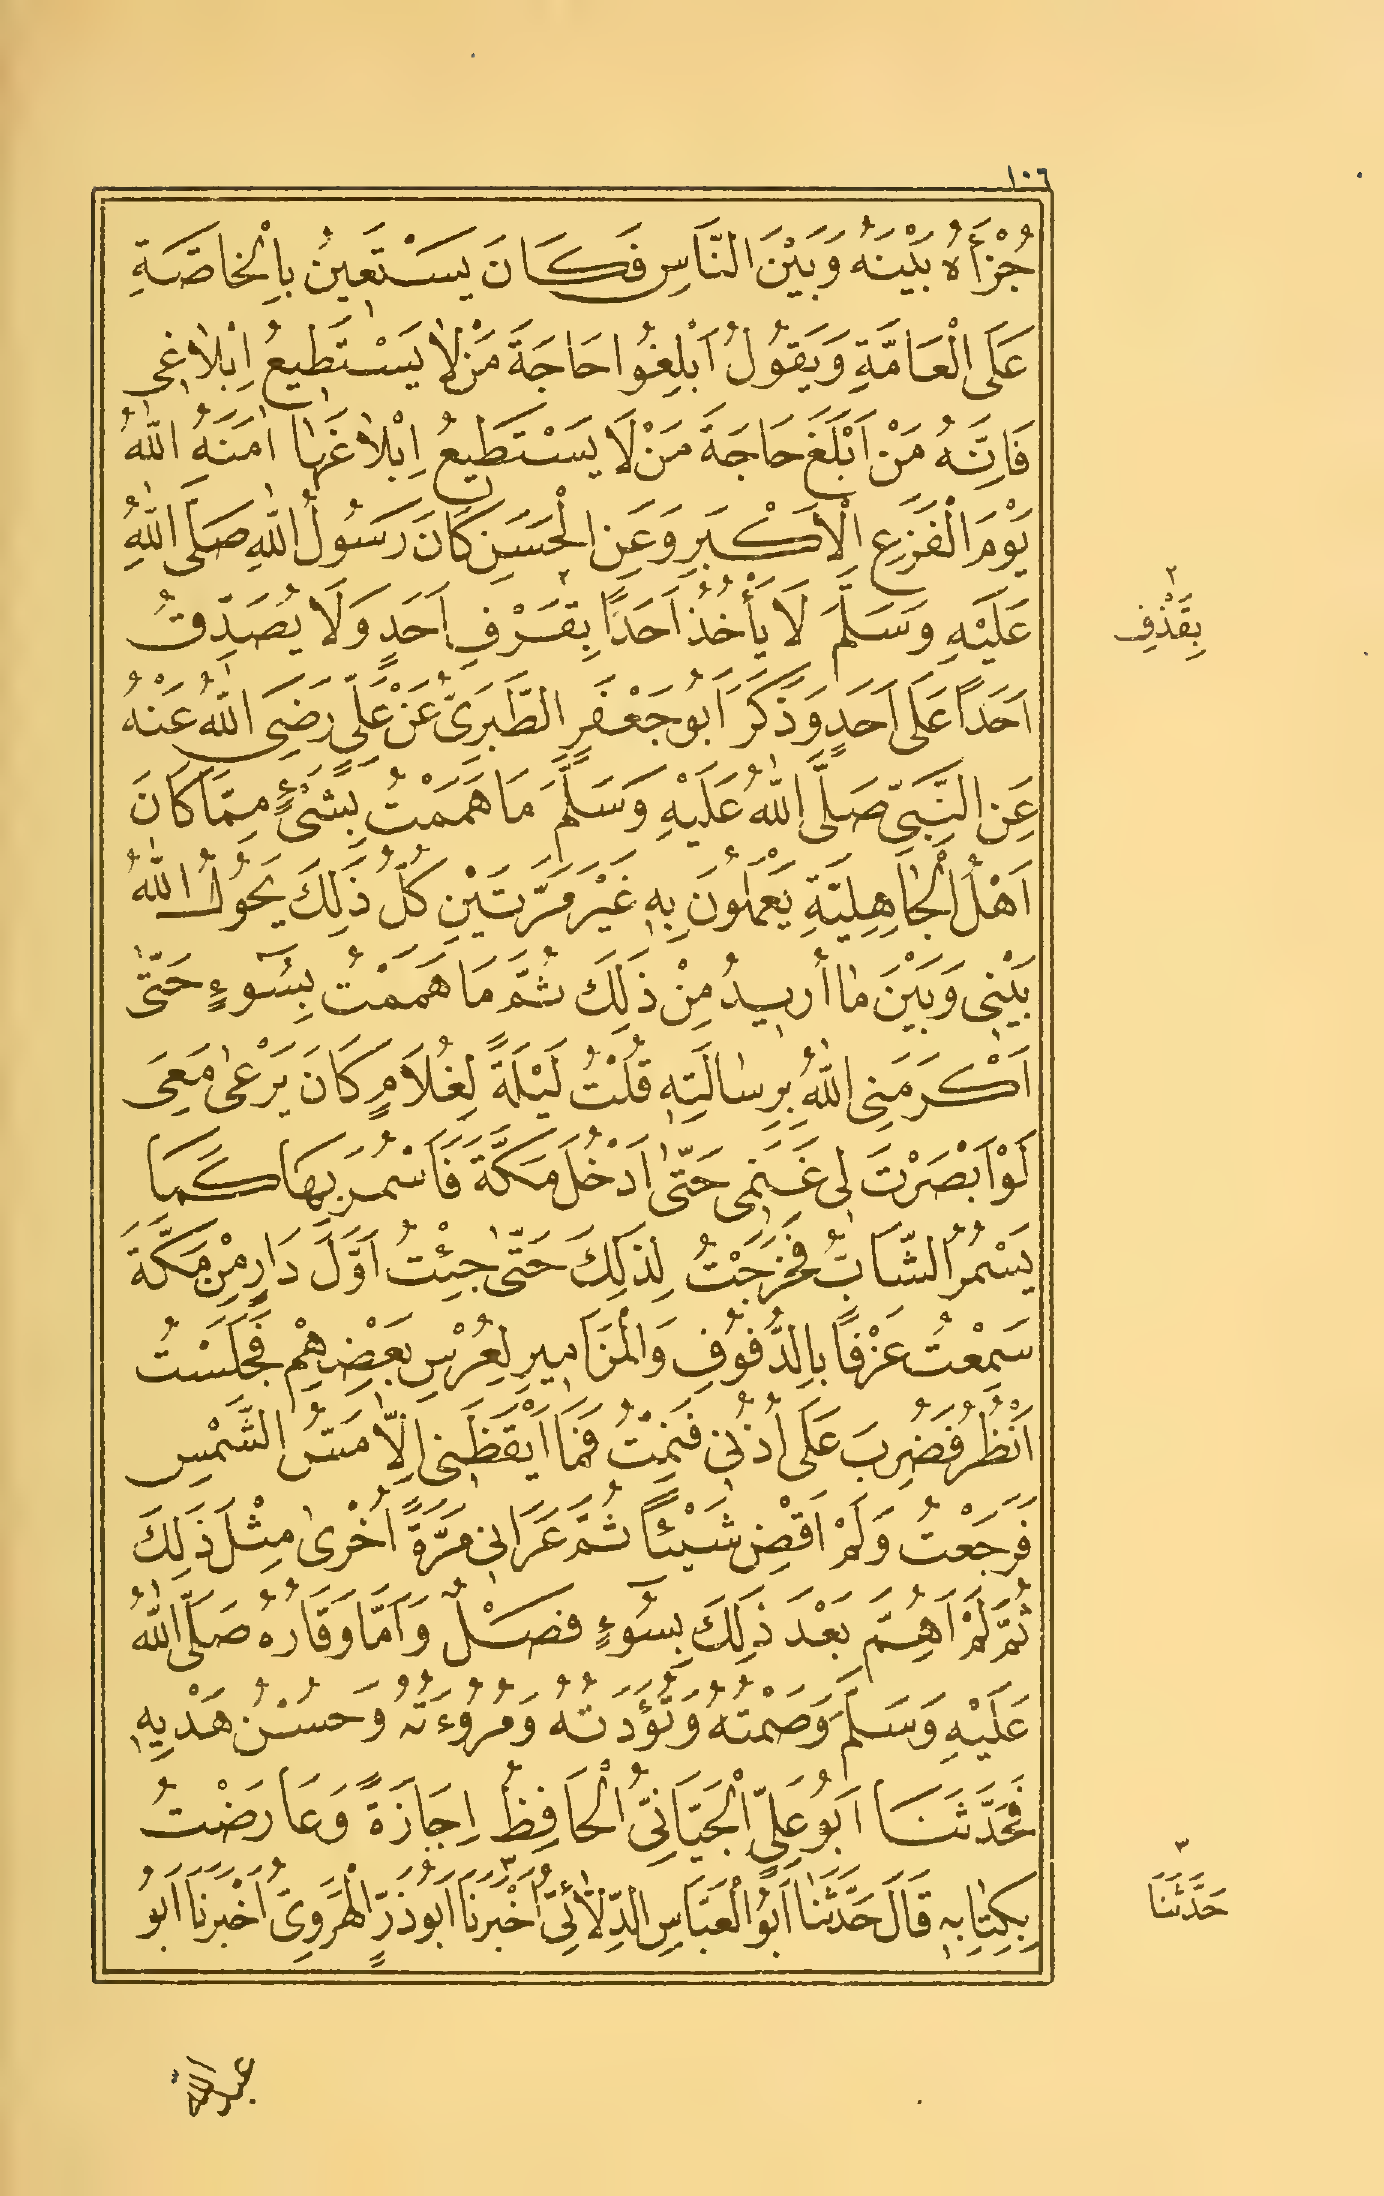 ١٠٦
جُزْأَهُ بَيْنَهُ وَبَيْنَ النَّاسِ فَكَانَ يَسْتَعِينُ بِالْخَاصَّةِ
عَلَى الْعَامَّةِ وَيَقُولُ اَبْلِغُوا حَاجَةَ مَنْ لَا يَسْتَطِيعُ اِبْلَاغِى
فَاِنَّهُ مَنْ اَبْلَغَ حَاجَةَ مَنْ لَا يَسْتَطِيعُ اِبْلَاغَهَا اٰمَنَهُ اللّٰهُ
يَوْمَ الْفَزَعِ الْاَكْبَرِ وَعَنِ الْحَسَنِ كَانَ رَسُولُ اللّٰهِ صَلَّى اللّٰهُ
عَلَيْهِ وَسَلَّمَ لَا يَأْخُذُ اَحَدًا بِقَرْفِ ٢ اَحَدٍ وَلَا يُصَدِّقُ
اَحَدًا عَلَى اَحَدٍ وَذَكَرَ اَبُو جَعْفَرٍ الطَّبَرِىُّ عَنْ عَلِىٍّ رَضِىَ اللّٰهُ عَنْهُ
عَنِ النَّبِىِّ صَلَّى اللّٰهُ عَلَيْهِ وَسَلَّمَ مَا هَمَمْتُ بِشَىْءٍ مِمَّا كَانَ
اَهْلُ الْجَاهِلِيَّةِ يَعْمَلُونَ بِهِ غَيْرَ مَرَّتَيْنِ كُلُّ ذٰلِكَ يَحُولُ اللّٰهُ
بَيْنِى وَبَيْنَ مَا أُرِيدُ مِنْ ذٰلِكَ ثُمَّ مَا هَمَمْتُ بِسُوٓءٍ حَتّٰى
اَكْرَمَنِى اللّٰهُ بِرِسَالَتِهِ قُلْتُ لَيْلَةً لِغُلَامٍ كَانَ يَرْعٰى مَعِىَ
لَوْ اَبْصَرْتَ لِى غَنَمِى حَتّٰى اَدْخُلَ مَكَّةَ فَاَسْمُرَ بِهَا كَمَا
يَسْمُرُ الشَّابُّ فَخَرَجْتُ لِذٰلِكَ حَتّٰى جِئْتُ اَوَّلَ دَارٍ مِنْ مَكَّةَ
سَمِعْتُ عَزْفًا بِالدُّفُوفِ وَالْمَزَامِيرِ لِعُرْسِ بَعْضِهِمْ فَجَلَسْتُ
اَنْظُرُ فَضُرِبَ عَلَى اُذُنِى فَنِمْتُ فَمَا اَيْقَظَنِى اِلَّا مَسُّ الشَّمْسِ
فَرَجَعْتُ وَلَمْ اَقْضِ شَيْئًا ثُمَّ عَرَانِى مَرَّةً اُخْرٰى مِثْلَ ذٰلِكَ
ثُمَّ لَمْ اَهُمَّ بَعْدَ ذٰلِكَ بِسُوٓءٍ فَصْلٌ وَاَمَّا وَقَارُهُ صَلَّى اللّٰهُ
عَلَيْهِ وَسَلَّمَ وَصَمْتُهُ وَتُؤَدَتُهُ وَمُرُوءَتُهُ وَحُسْنُ هَدْيِهِ
فَحَدَّثَنَا اَبُو عَلِىٍّ الْجَيَّانِىُّ الْحَافِظُ اِجَازَةً وَعَارَضْتُ
بِكِتَابِهِ قَالَ حَدَّثَنَا اَبُو الْعَبَّاسِ الدِّلَائِىُّ اَخْبَرَنَا ٣ اَبُو ذَرٍّ الْهَرَوِىُّ اَخْبَرَنَا اَبُو
٢
بِقَذْفِ
٣
حَدَّثَنَا
عبد الله